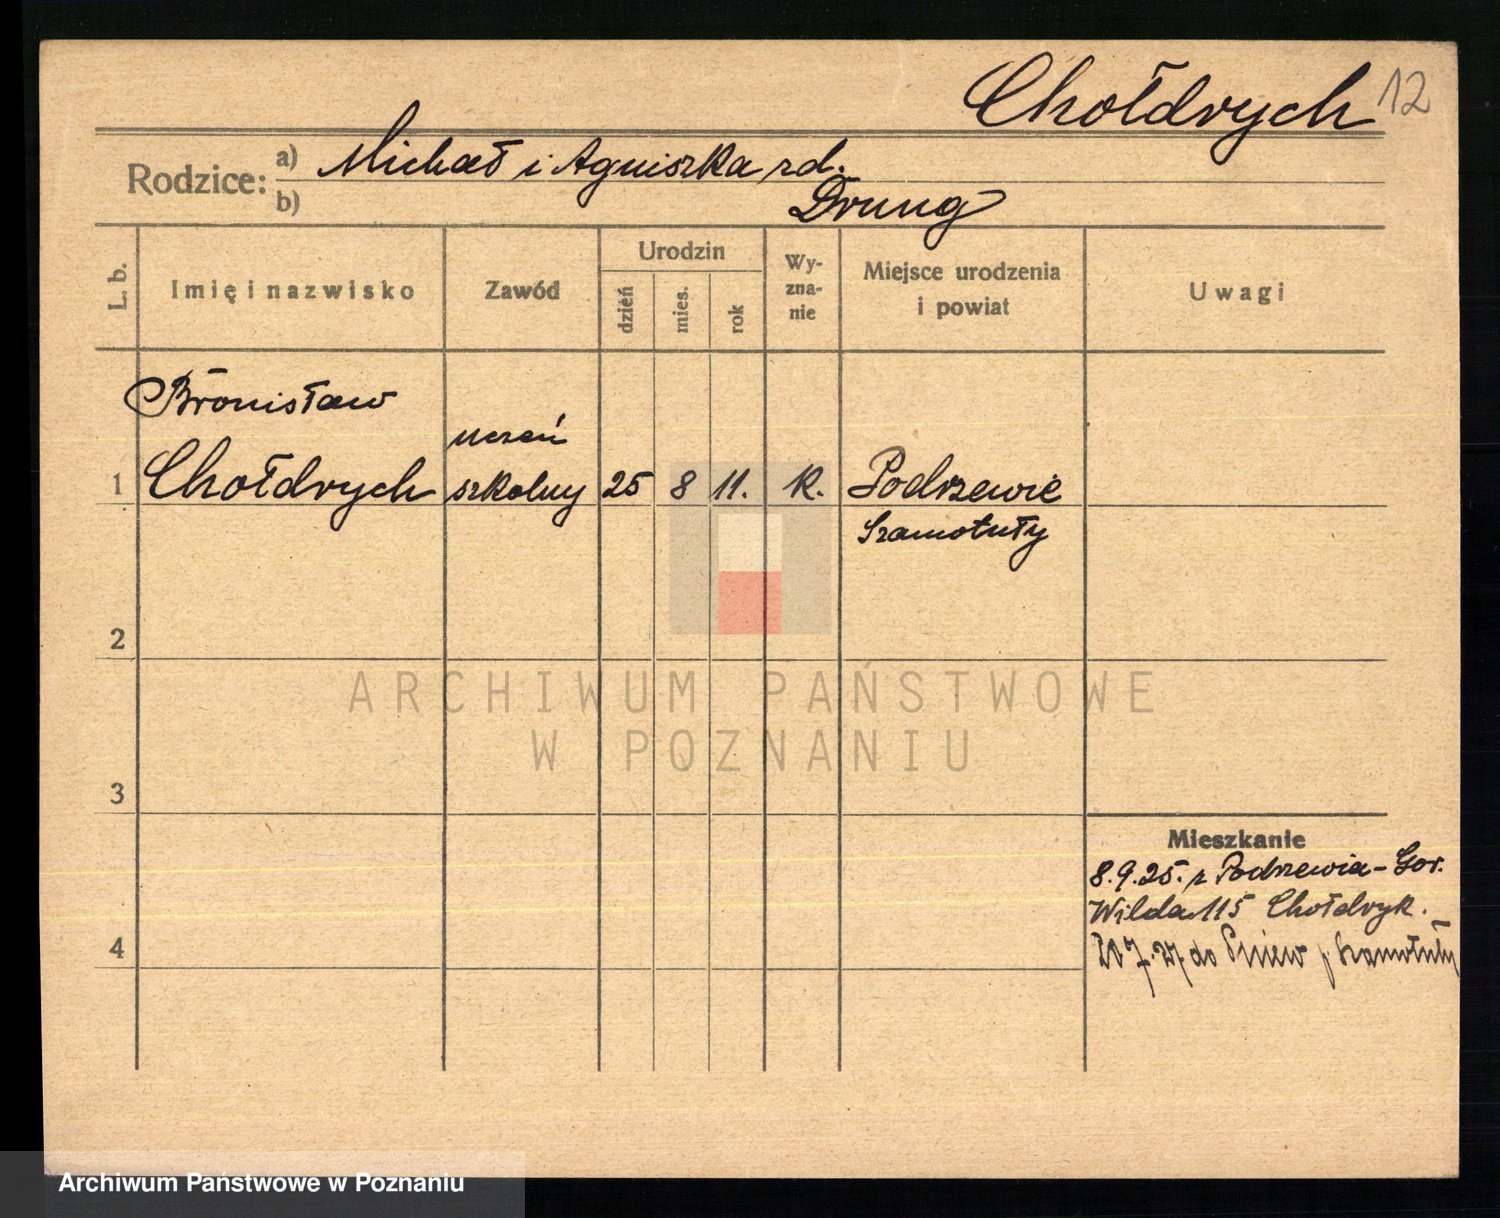 Chołdrych 12
Rodzice: a) Michał i Agniszka rd.
b) Drung
L. b.
Imię i nazwisko
Zawód
Urodzin
dzień
mies.
rok
Wy-
zna-
nie
Miejsce urodzenia
i powiat
Uwagi
Bronisław
uczeń
1 Chołdrych szkolny 25 8 11. k. Podrzewie
Szamotuły
2
ARCHIWUM PAŃSTWOWE
W POZNANIU
3
Mieszkanie
8.9.25. z Podrzewia - Gor.
Wilda 115 Chołdryk.
4
20 7. 27. do Pniew p. Szamotuły
Archiwum Państwowe w Poznaniu